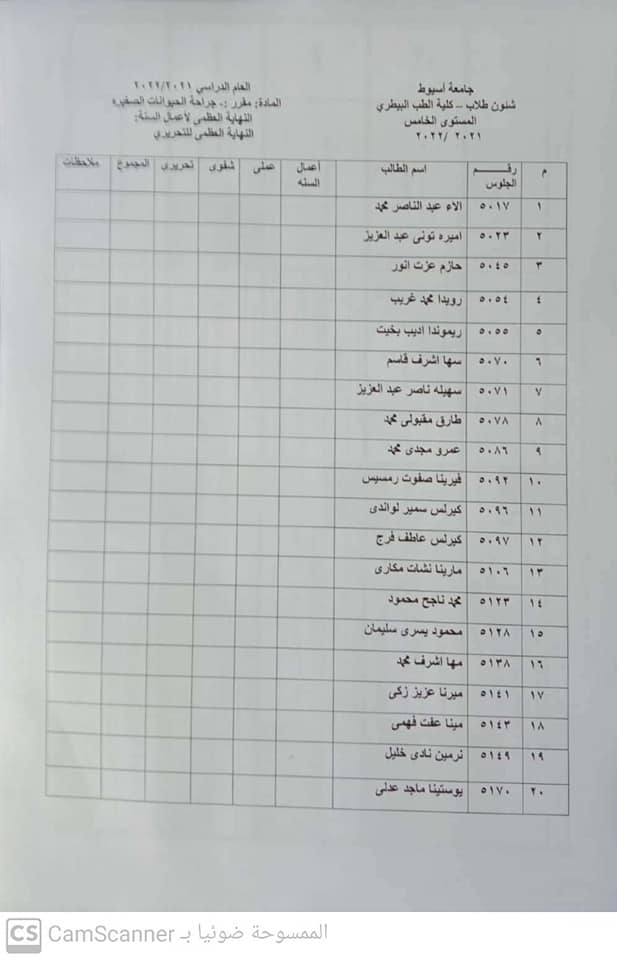 جامعة أسيوط
شئون طلاب – كلية الطب البيطري
المستوى الخامس
٢٠٢١ /٢٠٢٢
العام الدراسي ٢٠٢٢/٢٠٢١
المادة: مقرر :- جراحة الحيوانات الصغيره
النهاية العظمى لأعمال السنة:
النهاية العظمى للتحريري
م رقم الجلوس اسم الطالب أعمال السنه عملى شفوى تحريرى المجموع ملاحظات
١ ٥٠١٧ الاء عبد الناصر محمد
٢ ٥٠٢٣ اميره تونى عبد العزيز
٣ ٥٠٤٥ حازم عزت انور
٤ ٥٠٥٤ رويدا محمد غريب
٥ ٥٠٥٥ ريموندا اديب بخيت
٦ ٥٠٧٠ سها اشرف قاسم
٧ ٥٠٧١ سهيله ناصر عبد العزيز
٨ ٥٠٧٨ طارق مقبولى محمد
٩ ٥٠٨٦ عمرو مجدى محمد
١٠ ٥٠٩٢ فيرينا صفوت رمسيس
١١ ٥٠٩٦ كيرلس سمير لواندى
١٢ ٥٠٩٧ كيرلس عاطف فرج
١٣ ٥١٠٦ مارينا نشات مكارى
١٤ ٥١٢٣ محمد ناجح محمود
١٥ ٥١٢٨ محمود يسرى سليمان
١٦ ٥١٣٨ مها اشرف محمد
١٧ ٥١٤١ ميرنا عزيز زكى
١٨ ٥١٤٣ مينا عفت فهمى
١٩ ٥١٤٩ نرمين نادى خليل
٢٠ ٥١٧٠ يوستينا ماجد عدلى
CS CamScanner الممسوحة ضوئيا بـ